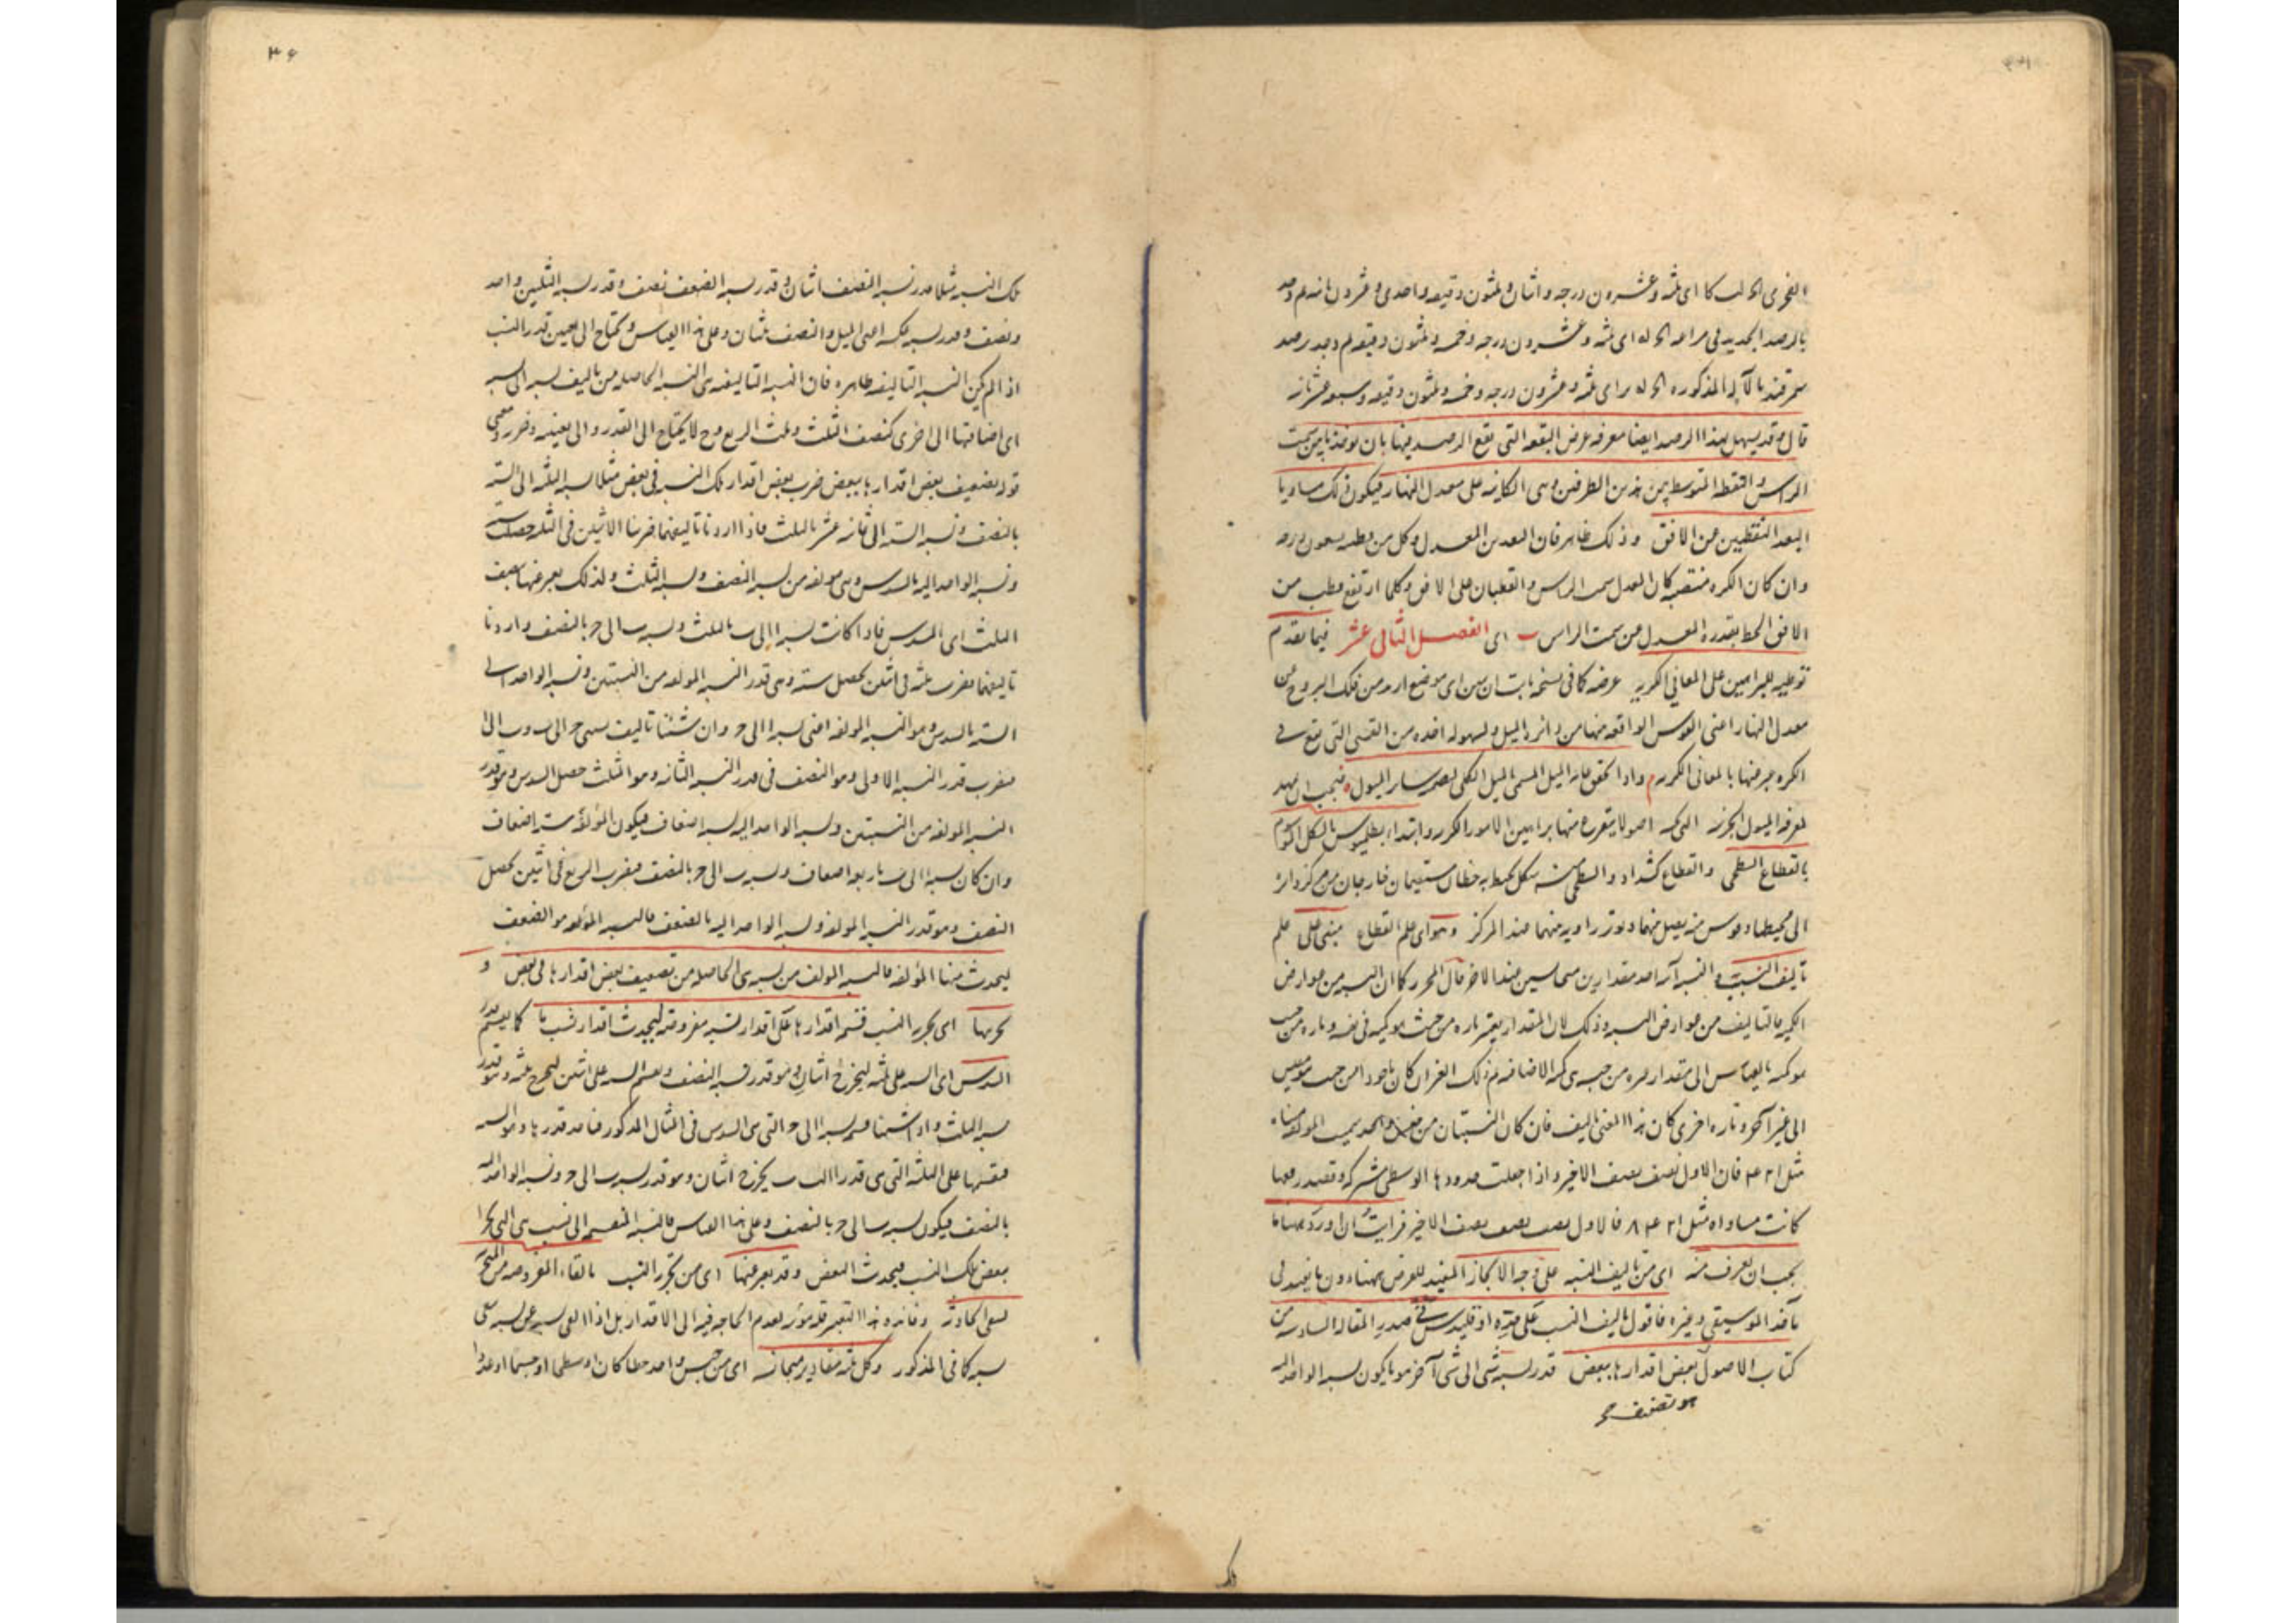 الفخري الح لب كا اى ثلثه وعشرون درجه واثنان وثلثون دقيقه واحدى وعشرون ثانيه ثم وجد
بالرصد الجديد فى مراغه الح له اى ثلثه وعشرون درجه وخمسه وثلثون دقيقه ثم وجد برصد
سمرقند بالآله المذكوره الح له ير اى ثلثه وعشرون درجه وخمسه وثلثون دقيقه وسبعه عشر ثانيه
قال وقد يسهل بهذا الرصد ايضا معرفه عرض البقعه التى يقع الرصد فيها بان يوخذ ما بين سمت
الراس والنقطه المتوسطه بين هذين الطرفين وهى الكاينه على معدل النهار فيكون ذلك مساويا
لبعد القطبين من الافق وذلك ظاهر فان البعد بين المعدل وكل من قطبيه تسعون درجه
وان كان الكره منتصبه كان المعدل سمت الراس والقطبان على الافق وكلما ارتفع قطب من
الافق انحط بقدره المعدل من سمت الراس ب اى الفصل الثانى عشر فيما تقدم
توطيه للبراهين على المعانى الكريه غرضه كما فى نسخه ثابت ان يبين اى موضع اريد من فلك البروج من
معدل النهار اعنى القوس الواقعه منها من دائره الميل ولسهوله اخذه من القسى التى تقع فى
الكره عبر عنها بالمعانى الكريه واذا تحقق غايه الميل المسمى بالميل الكلى لتصير ساير الميول فيجب ان يمهد
لمعرفه الميول الجزئيه التى اصولا يتفرع منها براهين الامور الكريه وابتداء بطلميوس بالشكل الموسوم
بالقطاع السطحى والقطاع كشداد والسطحى منه شكل يحيط به خطان مستقيمان خارجان من مركز دائره
الى محيطها وقوس منه يصل بينهما ويوتر زاويه منهما عند المركز وهو اى علم القطاع مبنى على علم
تاليف النسب والنسبه آراء احد مقدارين متجانسين عند الاخر قال المحرر كما ان النسبه من عوارض
الكميه فالتاليف من عوارض النسبه وذلك لان المقدار يعتبر تاره من حيث هو كميه فى نفسه وتاره من حيث
هو كميه بالقياس الى مقدار غيره من جنسه هى كميه الاضافه ثم ذلك الغير ان كان ماخوذا من حيث هو مقيس
الى غير آخر وتاره اخرى كان هذا المعنى تاليف فان كان النسبتان من جنس واحد سميت المولفه مثناه
مثل ا ٢ ٤ فان الاول نصف نصف الاخير واذا جعلت حدودها الوسطى مشتركه وقصد رفعها
كانت مساواه مثل ا ٢ ٤ ٨ فالاول نصف نصف نصف الاخير فرايت ان اورد ههنا ما
يجب ان يعرف منه اى من تاليف النسبه على وجه الايجاز المفيد للغرض ههنا دون ما يفيد فى
ماخذ الموسيقى وغيره فاقول تاليف النسب على ما حده اوقليدس فى صدر المقاله السادسه من
كتاب الاصول تضعيف بعض اقدارها ببعض قدر نسبه شى الى شى آخر هو ما يكون نسبه الواحد اليه
تلك النسبه مثلا قدر نسبه النصف اثنان وقدر نسبه الضعف نصف وقدر نسبه الثلثين واحد
ونصف وقدر نسبه عكسه اعنى المثل والنصف ثلثان وعلى هذا القياس ويحتاج الى تعيين قدر النسب
اذا لم يكن النسبه التاليفيه ظاهره فان النسبه التاليفيه هى النسبه الحاصله من تاليف نسبه الى نسبه
اى اضافتها الى اخرى كنصف الثلث وثلث الربع وح لا يحتاج الى القدر والى تعيينه وضرر ومعنى
قوله تضعيف بعض اقدارها ببعض ضرب بعض اقدار تلك النسب فى بعض مثلا نسبه الثلثه الى السته
بالنصف ونسبه السته الى ثمانيه عشر بالثلث فاذا اردنا تاليفهما ضربنا الاثنين فى الثلثه حصلت سته
ونسبه الواحد اليه بالسدس وهى مولفه من نسبه النصف ونسبه الثلث ولذلك يعبر عنها بنصف
الثلث اى السدس فاذا كانت نسبه ا الى ب بالثلث ونسبه ب الى ج بالنصف واردنا
تاليفهما فضرب ثلثه فى اثنين يحصل سته وهى قدر النسبه المولفه من النسبتين ونسبه الواحد الى
السته بالسدس وهو النسبه المولفه اعنى نسبه ا الى ج وان شئنا تاليف نسبتى ج الى ب وب الى ا
فضرب قدر النسبه الاولى وهو النصف فى قدر النسبه الثانيه وهو الثلث حصل السدس وهو قدر
النسبه المولفه من النسبتين ونسبه الواحد اليه نسبه اضعاف فيكون المؤلفه سته اضعاف
وان كان نسبه ا الى ب باربعه اضعاف ونسبه ب الى ج بالنصف فضرب الربع فى اثنين يحصل
النصف وهو قدر النسبه المولفه ونسبه الواحد اليه بالضعف فالنسبه المؤلفه هو الضعف
ليحدث منها المؤلفه فالنسبه المولفه من نسب هى الحاصله من تضعيف بعض اقدارها فى بعض و
تجزيتها اى تجزيه النسب قسمه اقدارها على اقدار نسبه مفروضه ليحدث اقدار نسب ما كما يقسم قدر
السدس اى السته على ثلثه ليخرج اثنان وهو قدر نسبه النصف ويقسم السته على اثنين ليخرج ثلثه وهو قدر
نسبه الثلث واذا قسمنا نسبه ا الى ج التى هى السدس فى المثال المذكور فناخذ قدرها وهو السته
فقسمها على الثلثه التى هى قدر ا الى ب يخرج اثنان وهو قدر نسبه ب الى ج ونسبه الواحد اليه
بالنصف فيكون نسبه ب الى ج بالنصف وعلى هذا القياس فالنسبه المنقسمه الى نسب هى التى تجزا
بعض تلك النسب فيحدث البعض وقد يعبر عنها اى من تجزيه النسب بالقاء المفروضه من المتجزى
لتبقى الحادثه وفائده هذا التعبير قله مؤنه لعدم الحاجه فيه الى الاقدار بل اذا القى نسبه عن نسبه بقى
نسبه كما فى المذكور وكل ثلثه مقادير متجانسه اى من جنس واحد خطا كان او سطحا او جسما او عددا